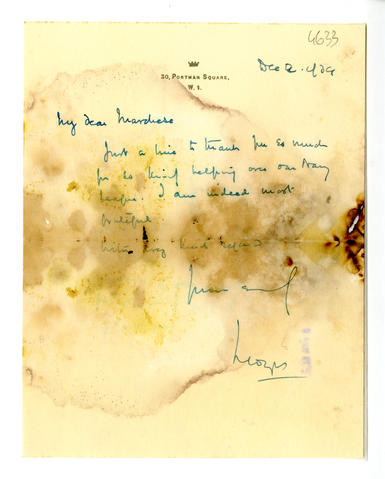 4633
30, PORTMAN SQUARE,
W. 1.
Dec 2. 1929
My dear Marchesa
Just a line to thank you so much
for so kindly helping over our Navy
League. I am indeed most
grateful.
With very kind regards